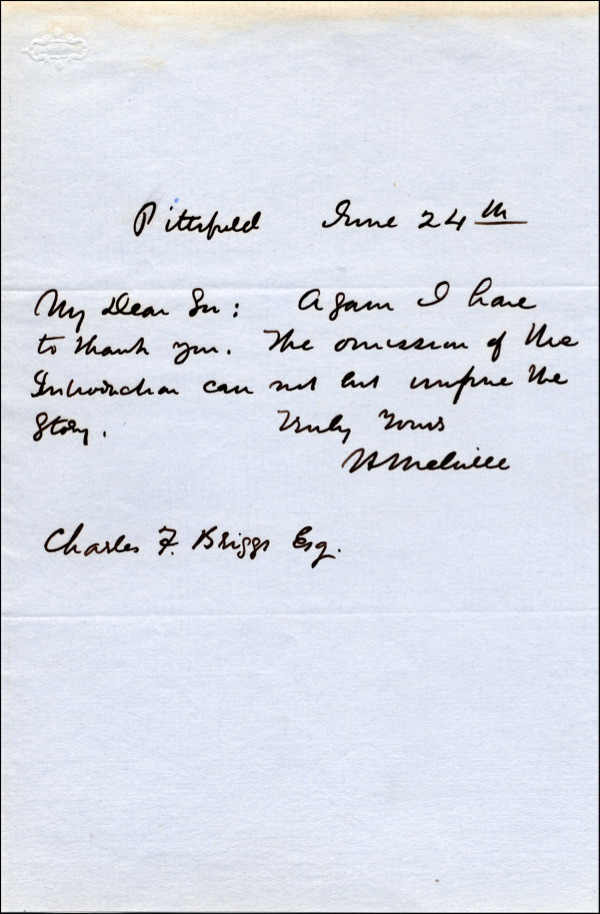 Pittsfield June 24th
My Dear Sir: Again I have
to thank you. The omission of the
Introduction can not but improve the
Story. Truly Yours
H Melville
Charles F. Briggs Esq.